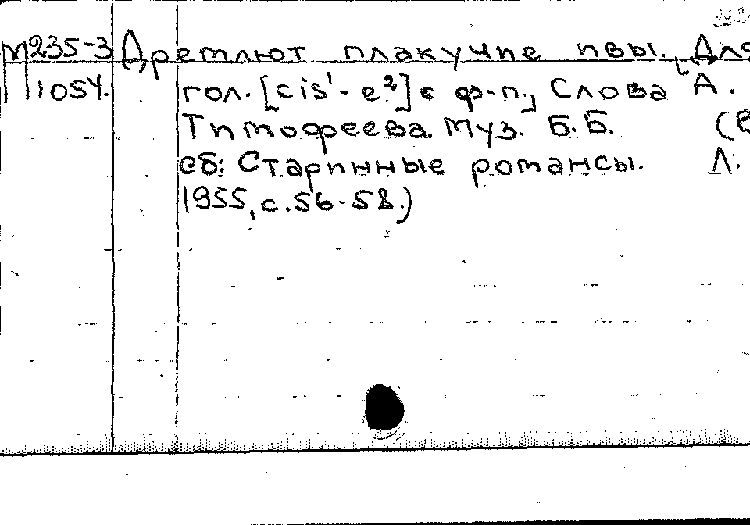 М235-3 Дремлют плакучие ивы. Для
1054. гол. [cis¹-e²] с ф-п., Слова А.
Тимофеева. Муз. Б.Б. (В
сб: Старинные романсы. Л.
1955, с.56-58.)